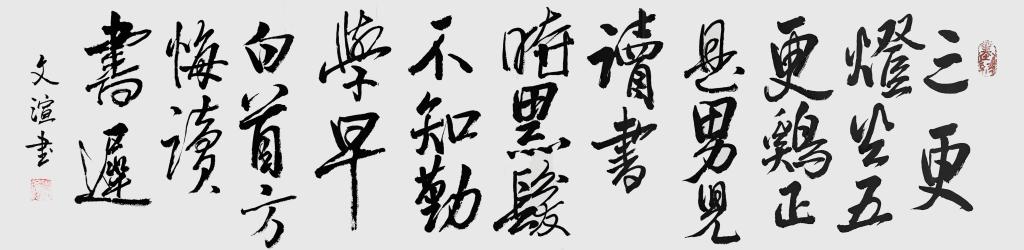 三更
燈火五
更鷄正
是男兒
讀書
時黑髮
不知勤
學早
白首方
悔讀
書遲
文渲書